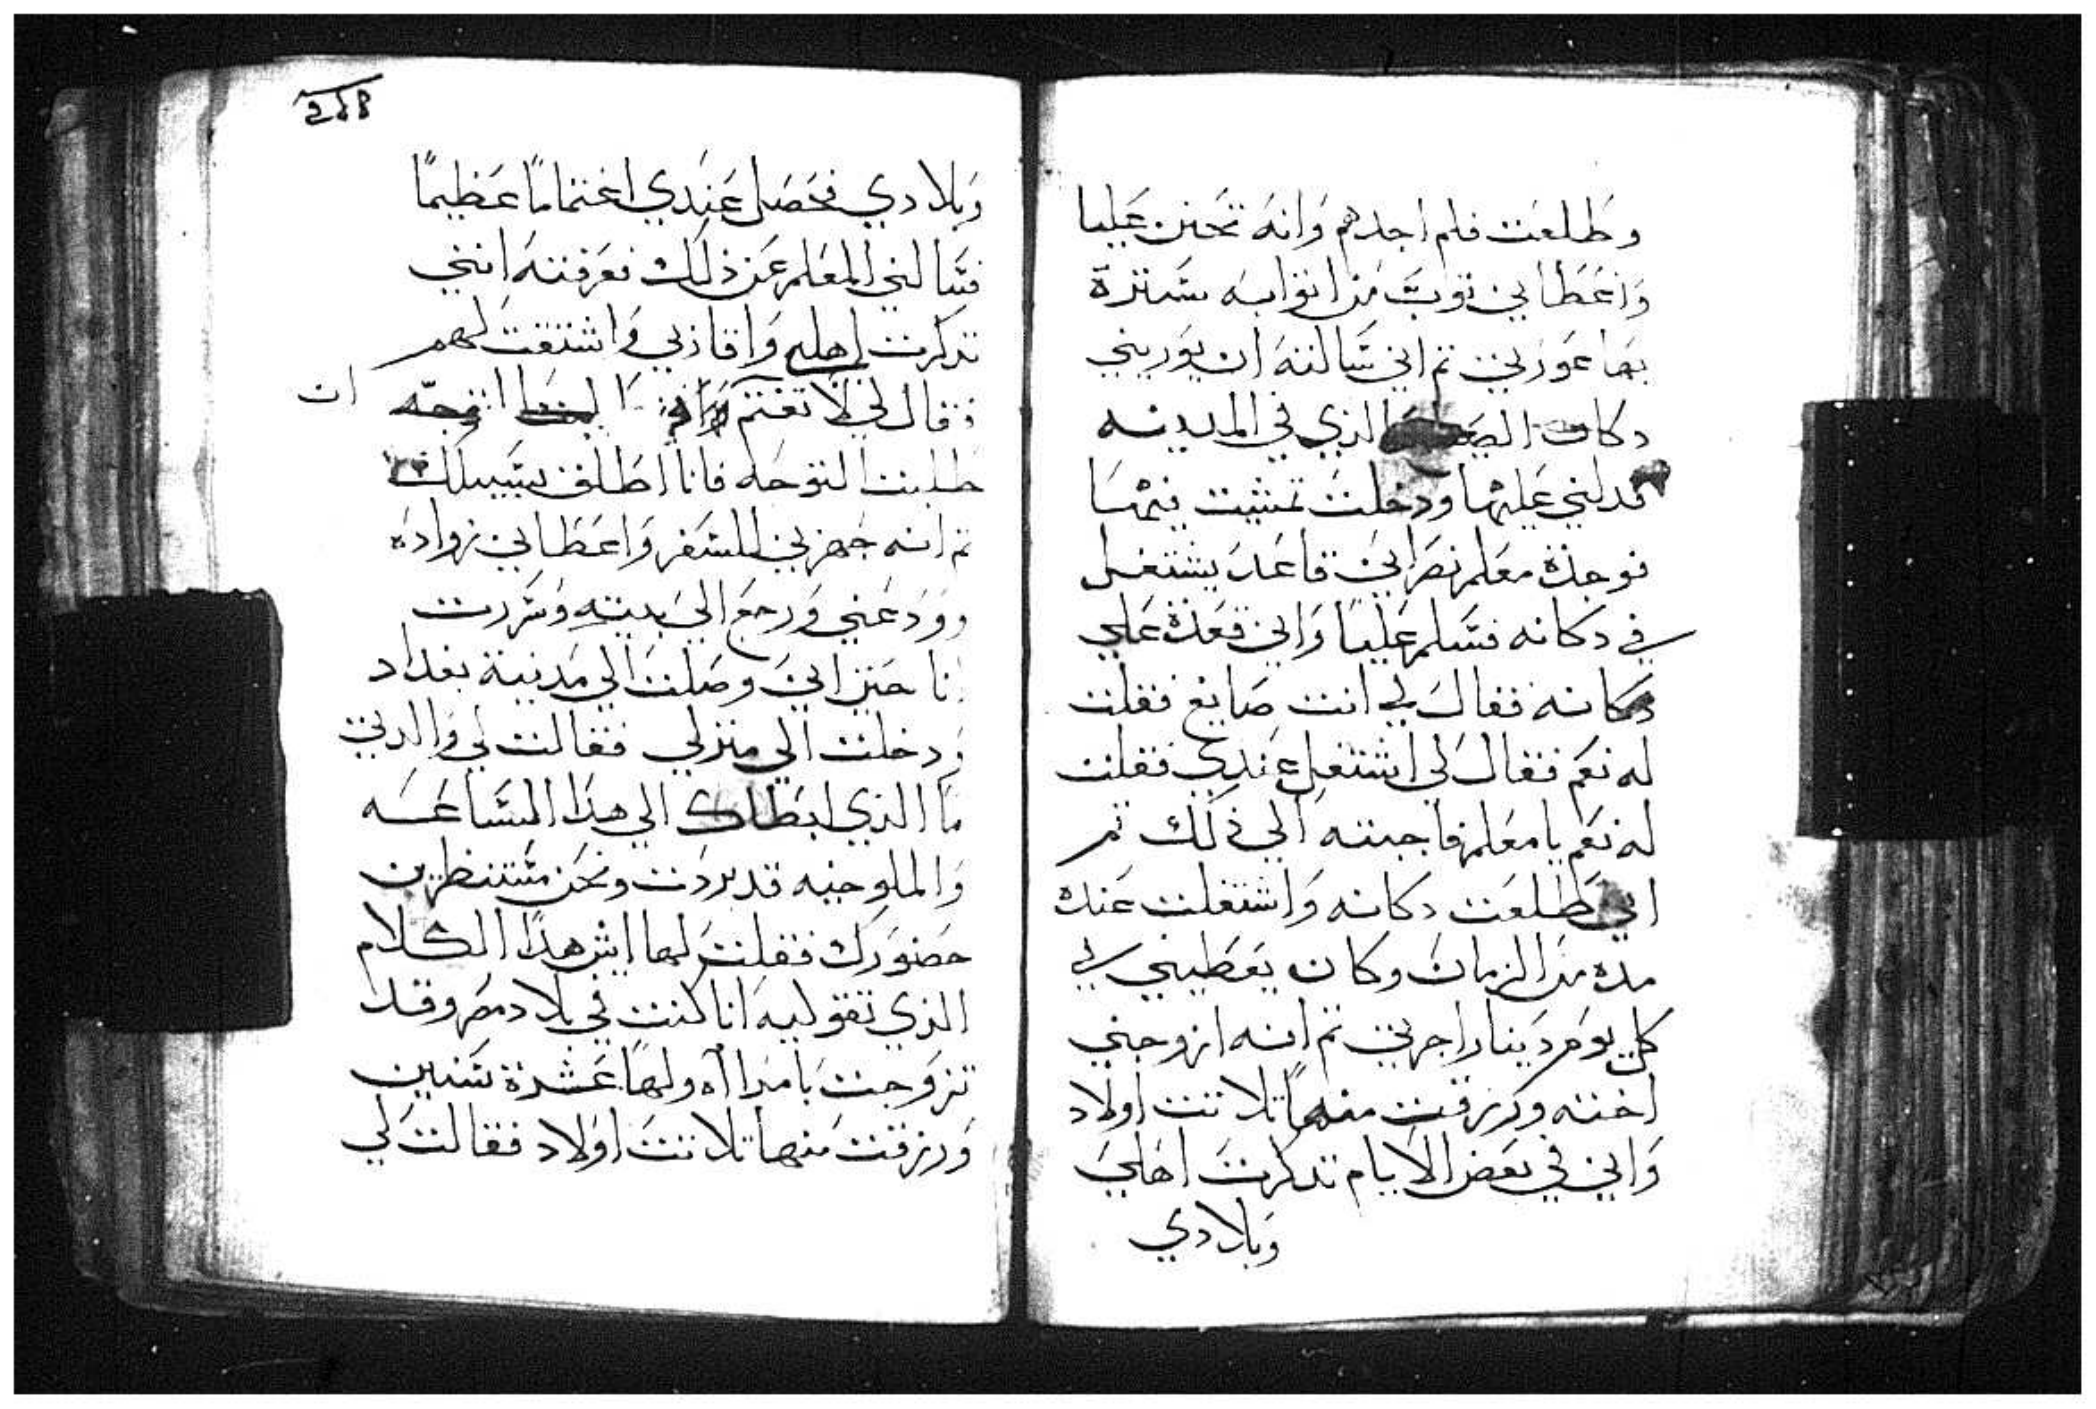 وطلعت فلم اجدهم وانه تحنن عليا
واعطاني توب من اتوابه سترة
بها عورتي تم اني سالته ان يوريني
دكات الذي في المدينه
فدلني عليها ودخلت تمشيت فيها
فوجدة معلم نصراني قاعد يشتغل
في دكانه فسلم عليا واني قعدة علي
دكانه فقال لي انت صايغ فقلت
له نعم فقال لي اشتغل عندي فقلت
له نعم يا معلم فاجبته الي ذلك تم
اني طلعت دكانه واشتغلت عنده
مده من الزمان وكان يعطيني لي
كل يوم دينار اجرتي تم انه ازوجني
اخته ورزقت منها تلاتت اولاد
واني في بعض الايام تدكرت اهلي
وبلادي
248
وبلادي فحصل عندي اغتماما عظيما
فسالني المعلم عن ذلك فعرفته انني
تدكرت اهلي واقاربي واشتقت لهم
فقال لي لا تغتم ان
طلبت التوجه فانا اطلق سبيلك
تم انه جهزني للسفر واعطاني زواده
وودعني ورجع الي بيته وسررت
انا حين اني وصلت الي مدينة بغداد
ودخلت الي منزلي فقالت لي والدتي
ما الدي ابطاك الي هدا الساعه
والملوخيه قد بردت ونحن مستنظرين
حضورك فقلت لها ايش هدا الكلام
الذي تقوليه انا كنت في بلاد مصر وقد
تزوجت بامراه ولها عشرة سنين
ورزقت منها تلاتت اولاد فقالت لي